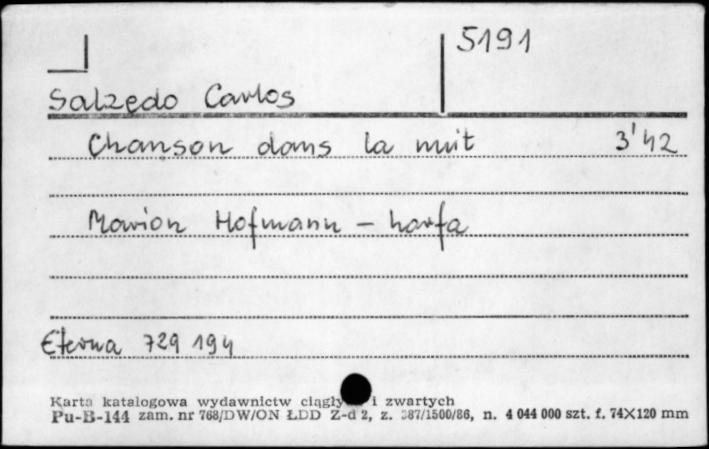 5191
Salzedo Carlos
Chanson dans la nuit 3'42
Marion Hofmann – harfa
Eterna 729 194
Karta katalogowa wydawnictw i zwartych
Pu-B-144 zam. nr 768/DW/ON ŁDD Z-d 2, z. 387/1500/86, n. 4 044 000 szt. f. 74X120 mm